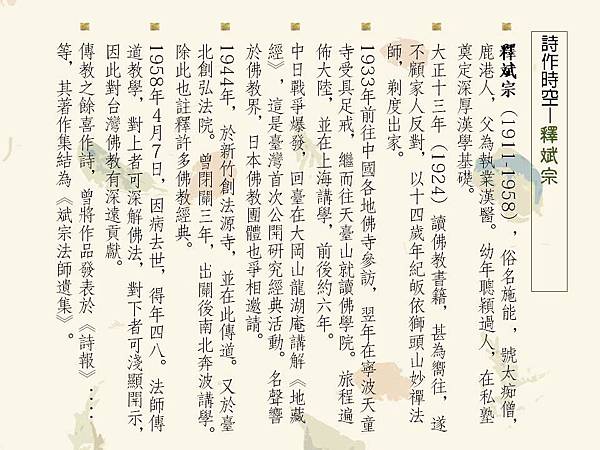 詩作時空—釋斌宗
釋斌宗（1911-1958），俗名施能，號太痴僧，
鹿港人，父為執業漢醫。幼年聰穎過人，在私塾
奠定深厚漢學基礎。
大正十三年（1924）讀佛教書籍，甚為嚮往，遂
不顧家人反對，以十四歲年紀皈依獅頭山妙禪法
師，剃度出家。
1933年前往中國各地佛寺參訪，翌年在寧波天童
寺受具足戒，繼而往天臺山就讀佛學院。旅程遍
佈大陸，並在上海講學，前後約六年。
中日戰爭爆發，回臺在大岡山龍湖庵講解《地藏
經》，這是臺灣首次公開研究經典活動。名聲響
於佛教界，日本佛教團體也爭相邀請。
1944年，於新竹創法源寺，並在此傳道。又於臺
北創弘法院。曾閉關三年，出關後南北奔波講學。
除此也註釋許多佛教經典。
1958年4月7日，因病去世，得年四八。法師傳
道教學，對上者可深解佛法，對下者可淺顯開示，
因此對台灣佛教有深遠貢獻。
傳教之餘喜作詩，曾將作品發表於《詩報》‥‥
等，其著作集結為《斌宗法師遺集》。